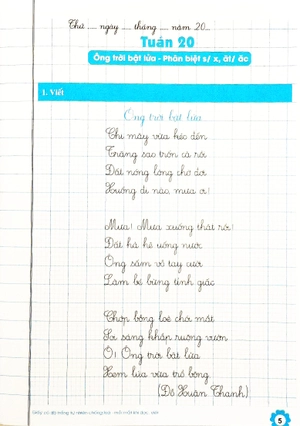 Thứ ... ngày ... tháng ... năm 20...
Tuần 20
Ông trời bật lửa - Phân biệt s/ x, ât/ ăc
1. Viết
Ông trời bật lửa
Chị mây vừa kéo đến
Trăng sao trốn cả rồi
Đất nóng lòng chờ đợi
Xuống đi nào, mưa ơi!
Mưa! Mưa xuống thật rồi!
Đất hả hê uống nước
Ông sấm vỗ tay cười
Làm bé bừng tỉnh giấc
Chớp bỗng loè chói mắt
Soi sáng khắp ruộng vườn
Ơ! Ông trời bật lửa
Xem lúa vừa trổ bông
(Đỗ Xuân Thanh)
5